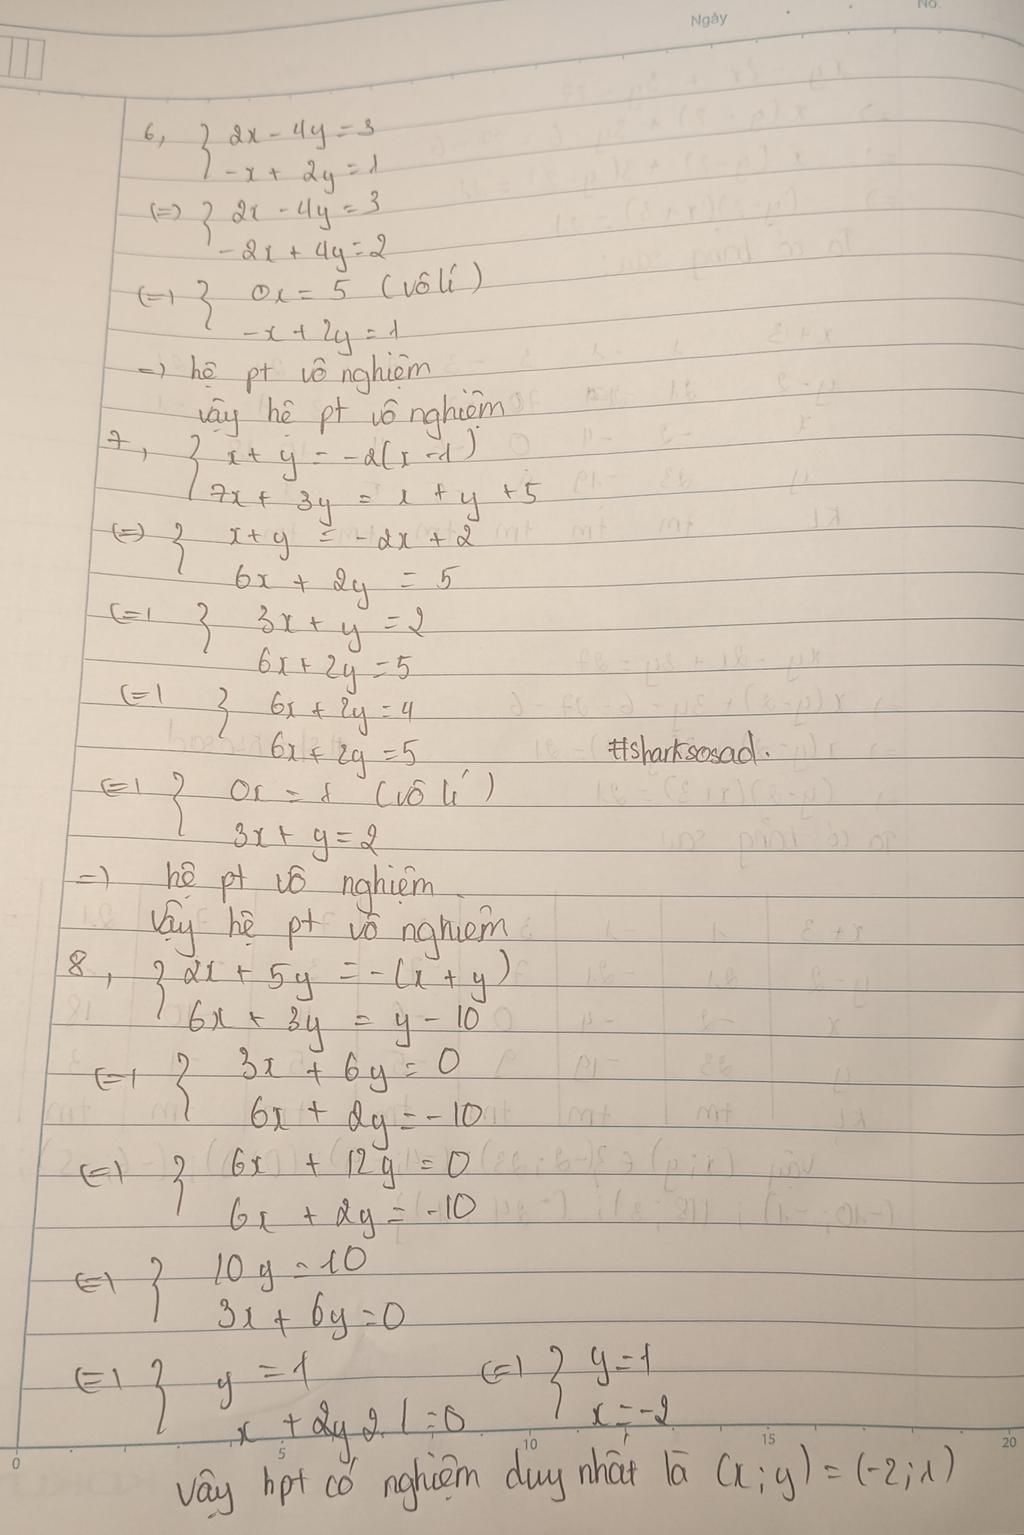 No.
Ngày
6, { 2x - 4y = 3
-x + 2y = 1
(=) { 2x - 4y = 3
-2x + 4y = 2
(=) { 0x = 5 (vô lí)
-x + 2y = 1
=) hệ pt vô nghiệm
vậy hệ pt vô nghiệm
7, { x + y = -2(x - 1)
7x + 3y = x + y + 5
(=) { x + y = -2x + 2
6x + 2y = 5
(=) { 3x + y = 2
6x + 2y = 5
(=) { 6x + 2y = 4
6x + 2y = 5
#sharksosad.
(=) { 0x = 1 (vô lí)
3x + y = 2
=) hệ pt vô nghiệm
Vậy hệ pt vô nghiêm
8, { 2x + 5y = -(x + y)
6x + 3y = y - 10
(=) { 3x + 6y = 0
6x + 2y = -10
(=) { 6x + 12y = 0
6x + 2y = -10
(=) { 10y = 10
3x + 6y = 0
(=) { y = 1 (=) { y = 1
x + 2y 2.1 = 0 x = -2
0 5 10 15 20
Vậy hpt có nghiệm duy nhất là (x; y) = (-2; 1)